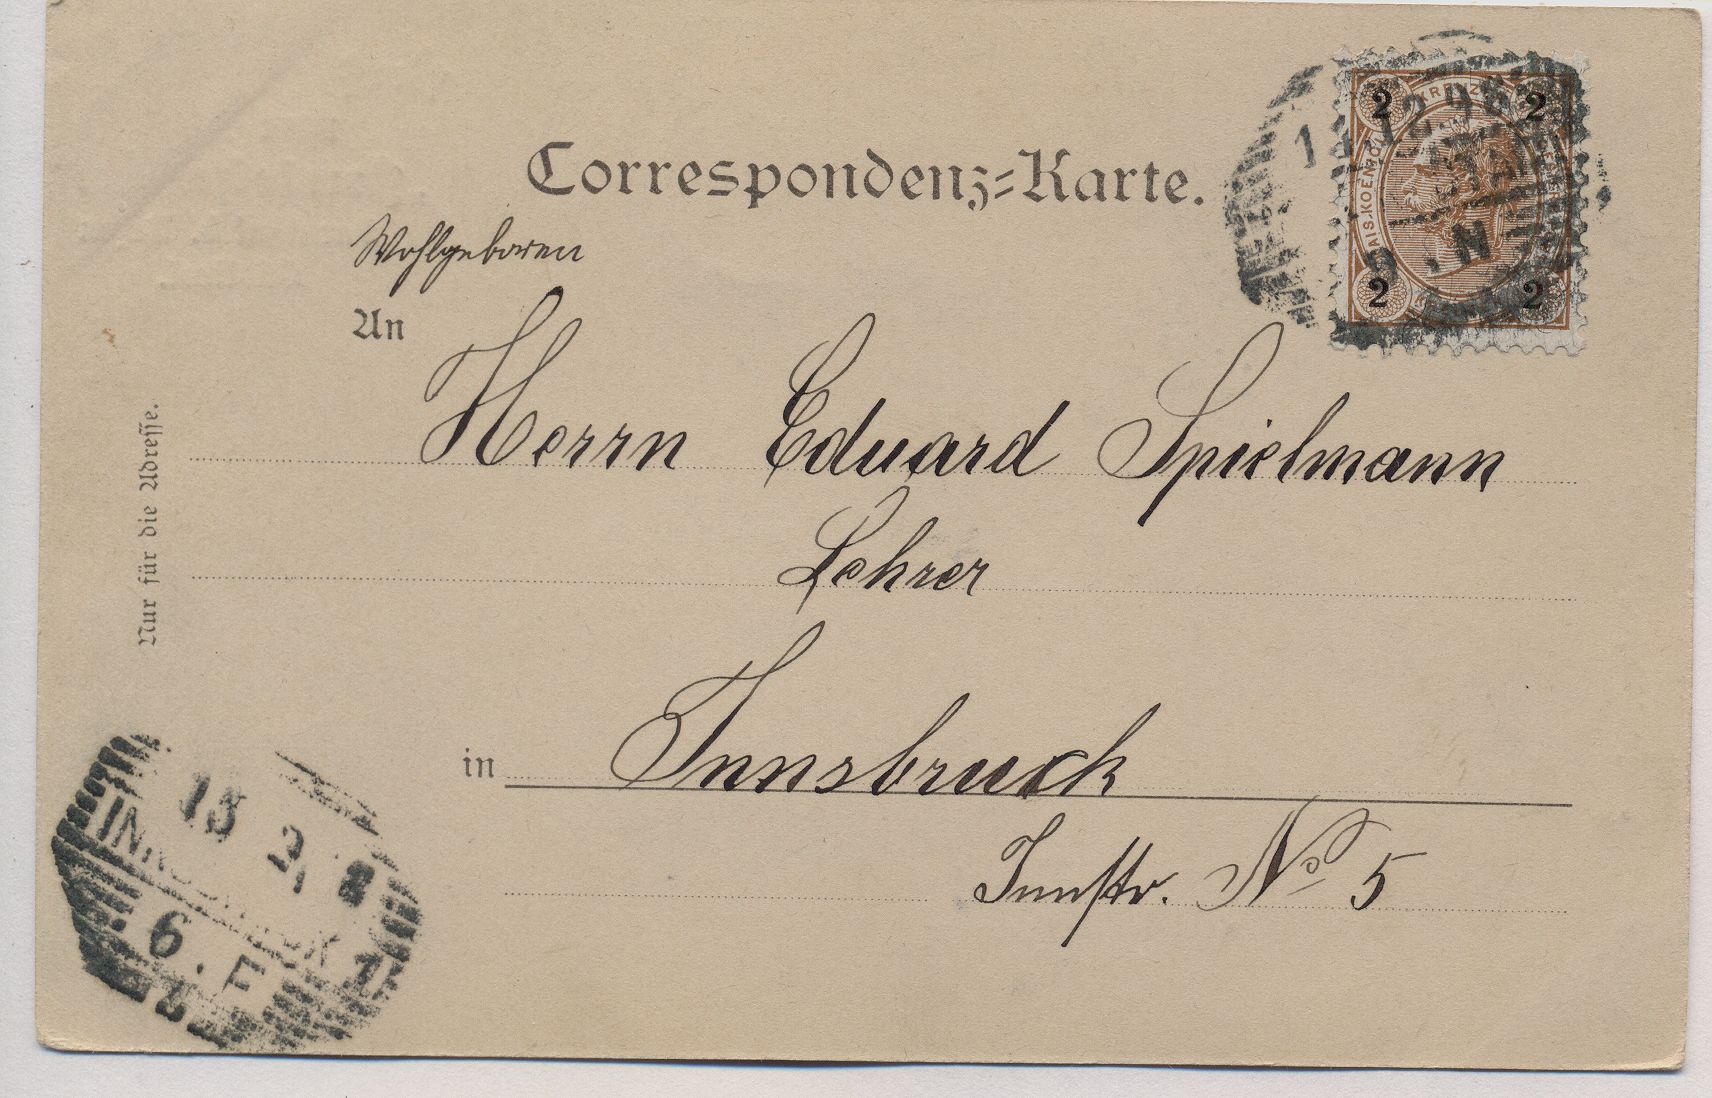 Correspondenz-Karte.
Wohlgeboren
An
Herrn Eduard Spielmann
Lehrer
in Innsbruck
Innstr. No 5
Nur für die Adresse.
2 KREUZER 2
2 2
9. N
INNSBRUCK 1
6. F